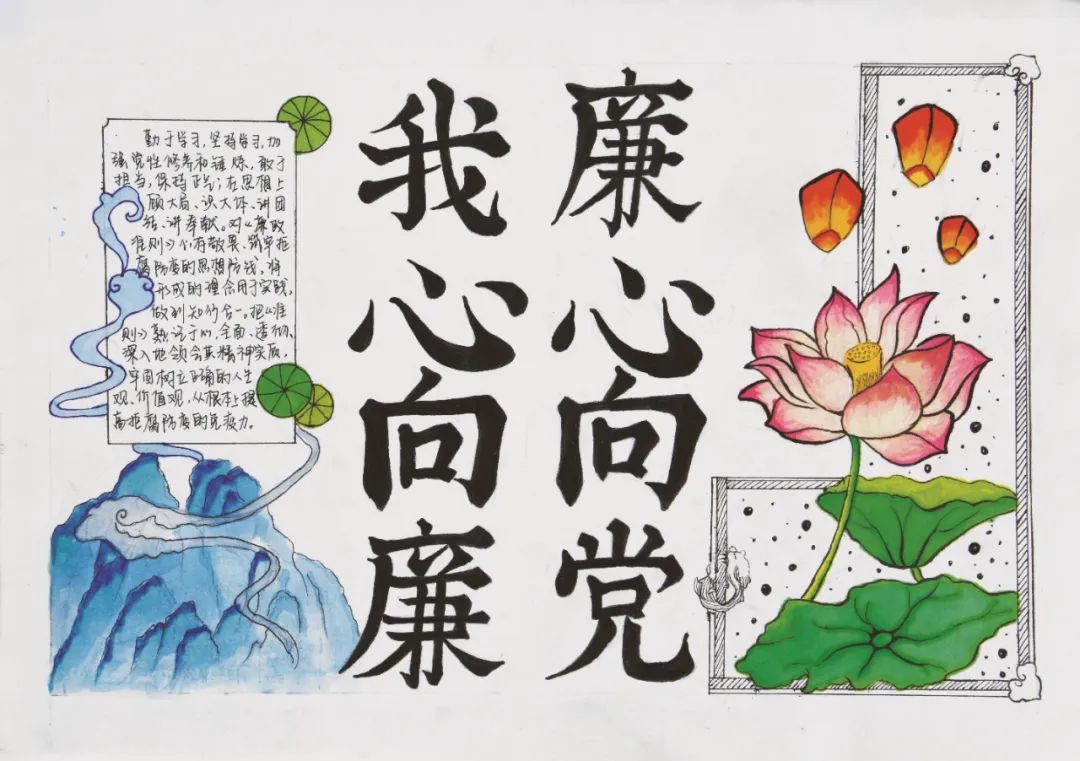 廉心向党
我心向廉
勤于学习,坚持学习,加
强党性修养和锤炼、敢于
担当,保持正气;在思想上
顾大局、识大体、讲团
结、讲奉献。对《廉政
准则》心存敬畏、筑牢拒
腐防变的思想防线,将
形成的理念用于实践,
做到知行合一。把《准
则》熟记于心,全面、透彻、
深入地领会其精神实质,
牢固树立正确的人生
观、价值观,从根本上提
高拒腐防变的免疫力。